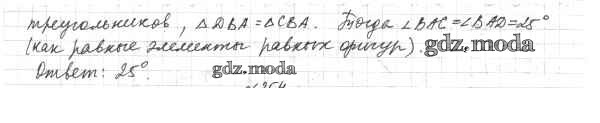 треугольников, △DBA = △CBA. Тогда ∠BAC = ∠BAD = 25°
(как равные элементы равных фигур). gdz.moda
Ответ: 25°. gdz.moda